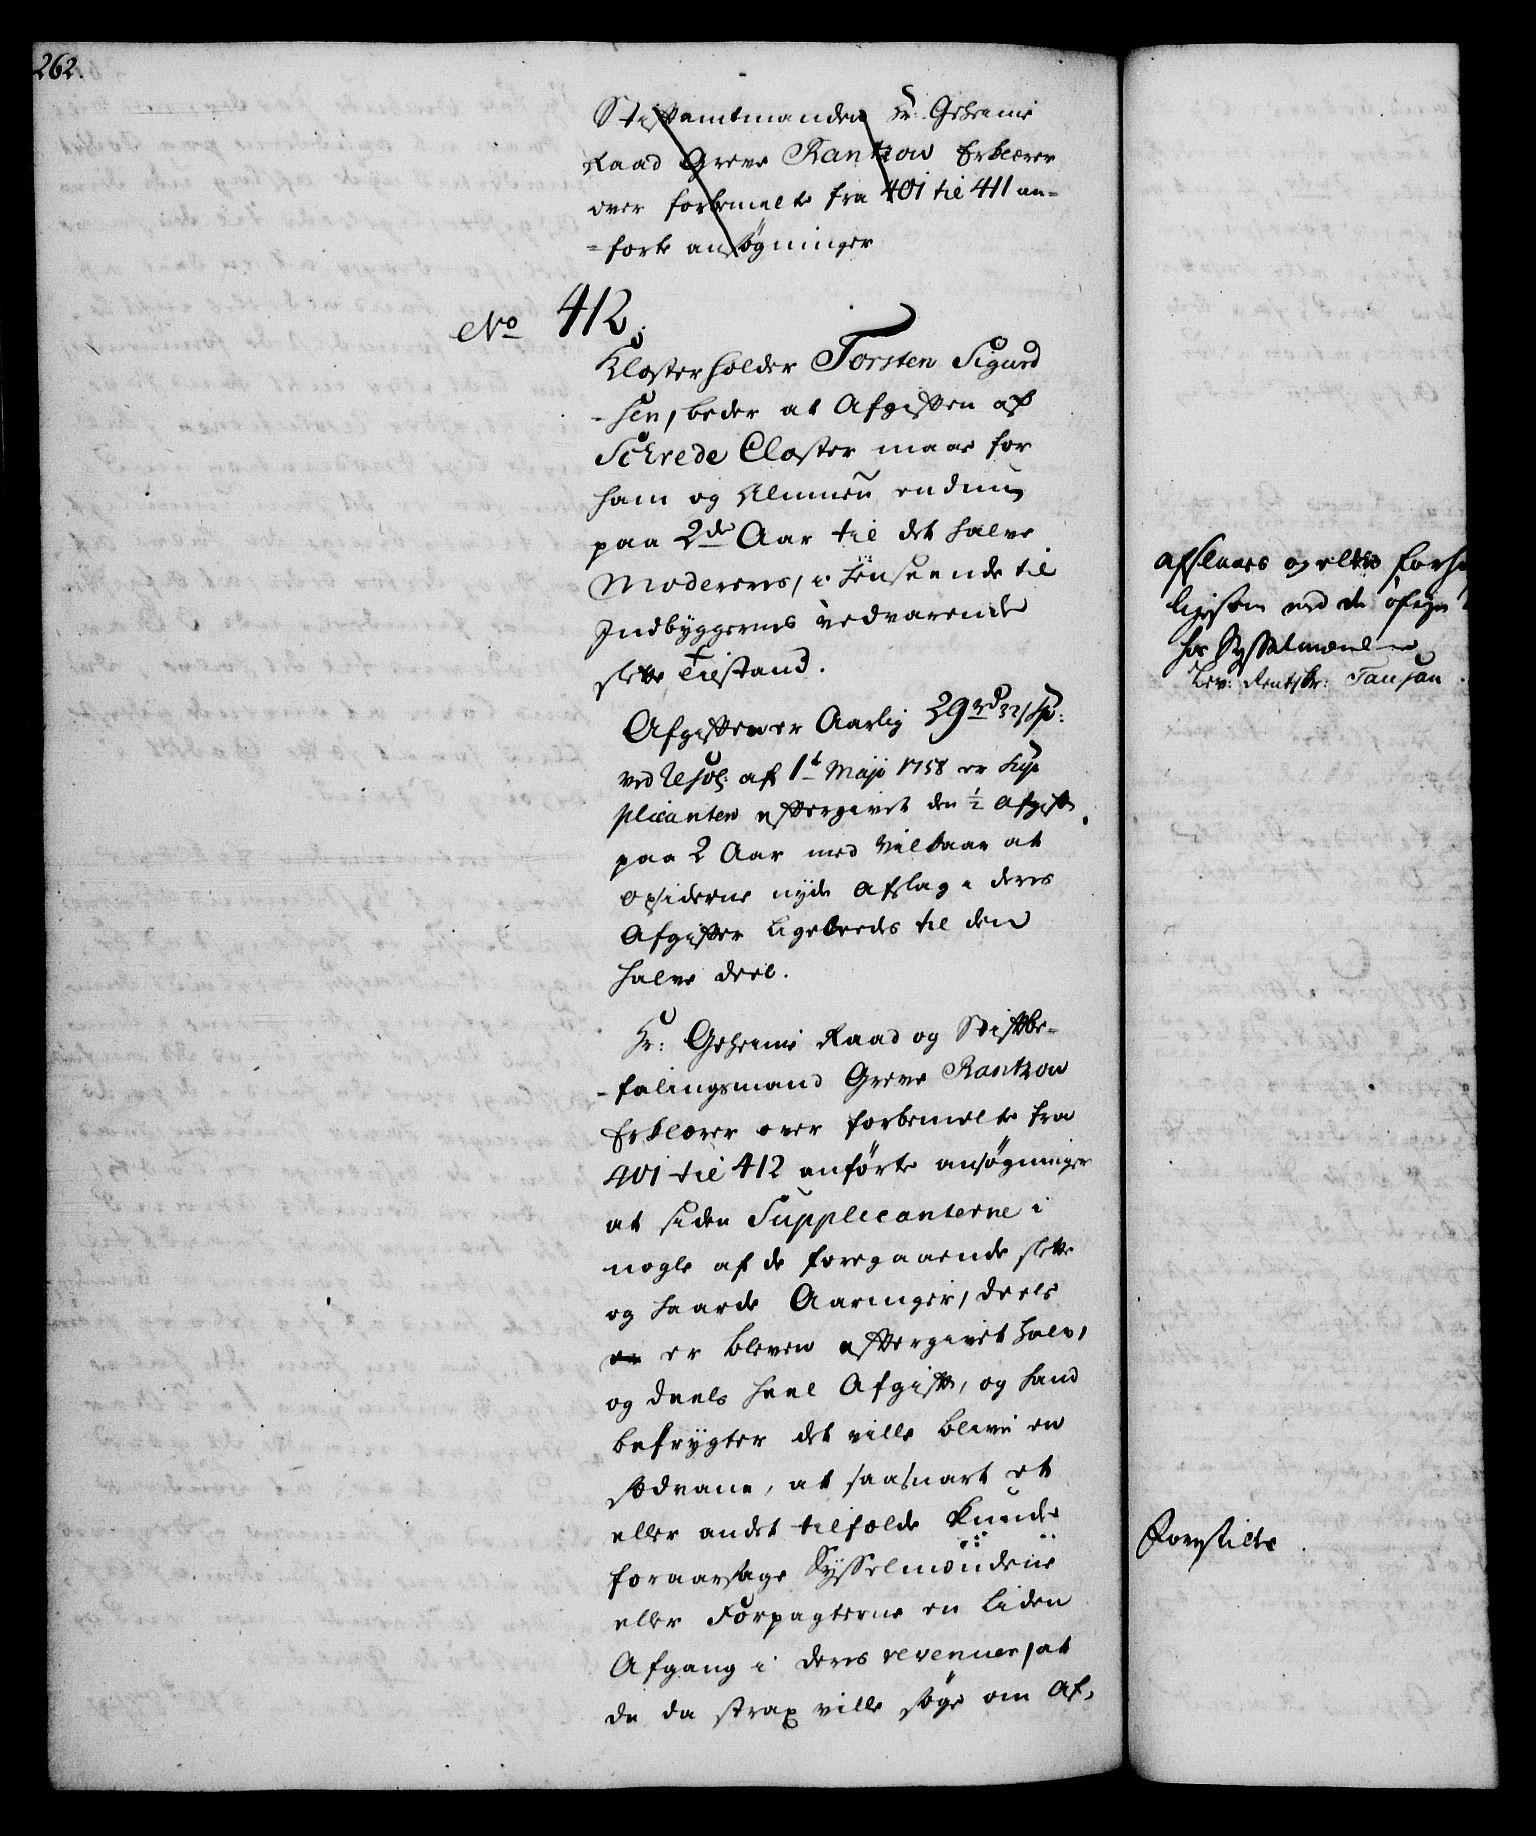 262.
Stiftamtmanden Hr. Geheime
Raad Greve Rantzow Erklærer
over forbemelte fra 401 til 411 an-
-førte ansøgninger
No 412.
Klosterholder Torsten Sigurd
-sen, beder at Afgiften af
Schrede Closter maae for
ham og Almuen endnu
paa 2de Aar til det halve
Modereres, i henseende til
Indbyggernes vedvarende
slette Tilstand.
Afgiften er Aarlig 29 rd 32 s Sp:
ved Resol: af 1t Maji 1758 er Sup
plicanten eftergivet den ½ Afgift
paa 2 Aar med Vilkaar at
opsiderne nyde Afslag i deres
Afgifter ligeleeds til den
halve deel.
Hr: Geheime Raad og Stiftbe-
-falingsmand Greve Rantzow
Erklærer over forbemelte fra
401 til 412 anførte ansøgninger
at siden Supplicanterne i
nogle af de foregaaende slette
og haarde Aaringer, deels
er bleven eftergivet halv,
og deels heel Afgift, og hand
befrygter det ville blive en
Sædvane, at saasnart et
eller andet tilfælde kunde
foraarsage Sysselmændene
eller Forpagterne en liden
Afgang i deres revenuer, at
de da strax ville søge om Af-
Afslaaes og
ved de øfrige
hos Sysselmænd
Lev: Rentskr: Tausan.
Forestilt